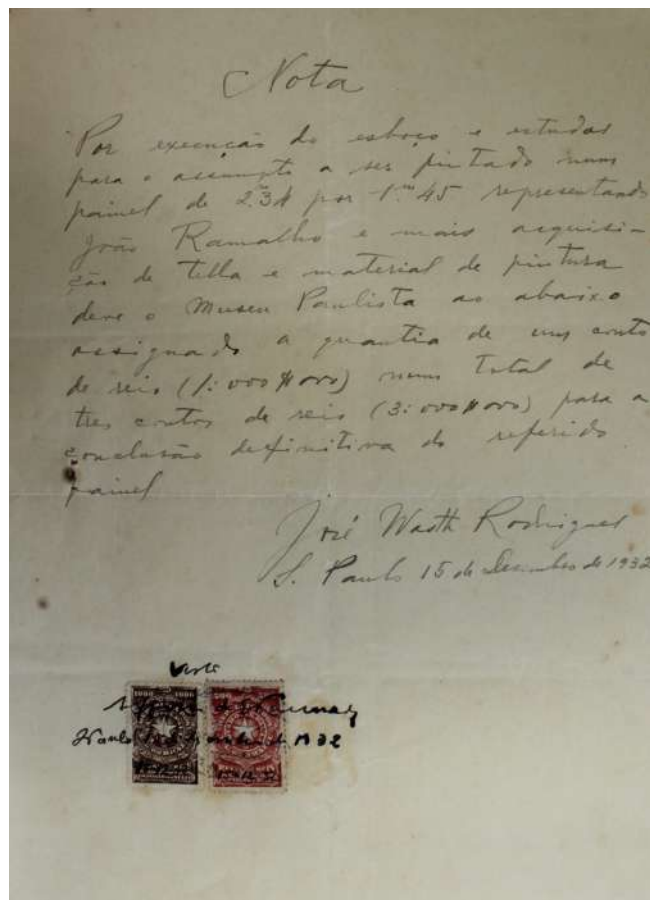 Nota
Por execução do esboço e estudos
para o assumpto a ser pintado num
painel de 2.m34 por 1.m45 representando
João Ramalho e mais acquisi-
ção de tella e material de pintura
deve o Museu Paulista ao abaixo
assignado a quantia de um conto
de reis (1:000$000) num total de
tres contos de reis (3:000$000) para a
conclusão definitiva do referido
painel
José Wasth Rodrigues
S. Paulo 15 de Dezembro de 1932
Visto
S Paulo 15 de dezembro de 1932
1000 1000